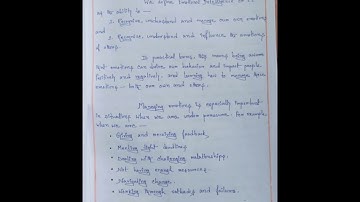 We define Emotional Intelligence
as the ability to —
1. Recognise, understand and manage our own emotions
and
2. Recognise, understand and influence the emotions
of others.
In practical terms, this means being aware
that emotions can drive our behavior and impact people
Positively and negatively, and learning how to manage those
emotions — both our own and others.
Managing emotions is especially important
in situations where we are under pressure. For example,
when we are —
• Giving and receiving feedback,
• Meeting tight deadlines
• Dealing with challenging relationships.
• Not having enough resources.
• Navigating change.
• Working through setbacks and failures.